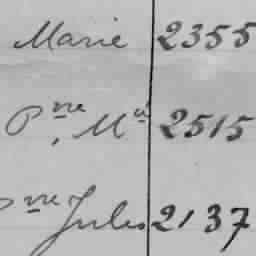 Marie 2355
Pre, Ma 2515
re Jules 2137